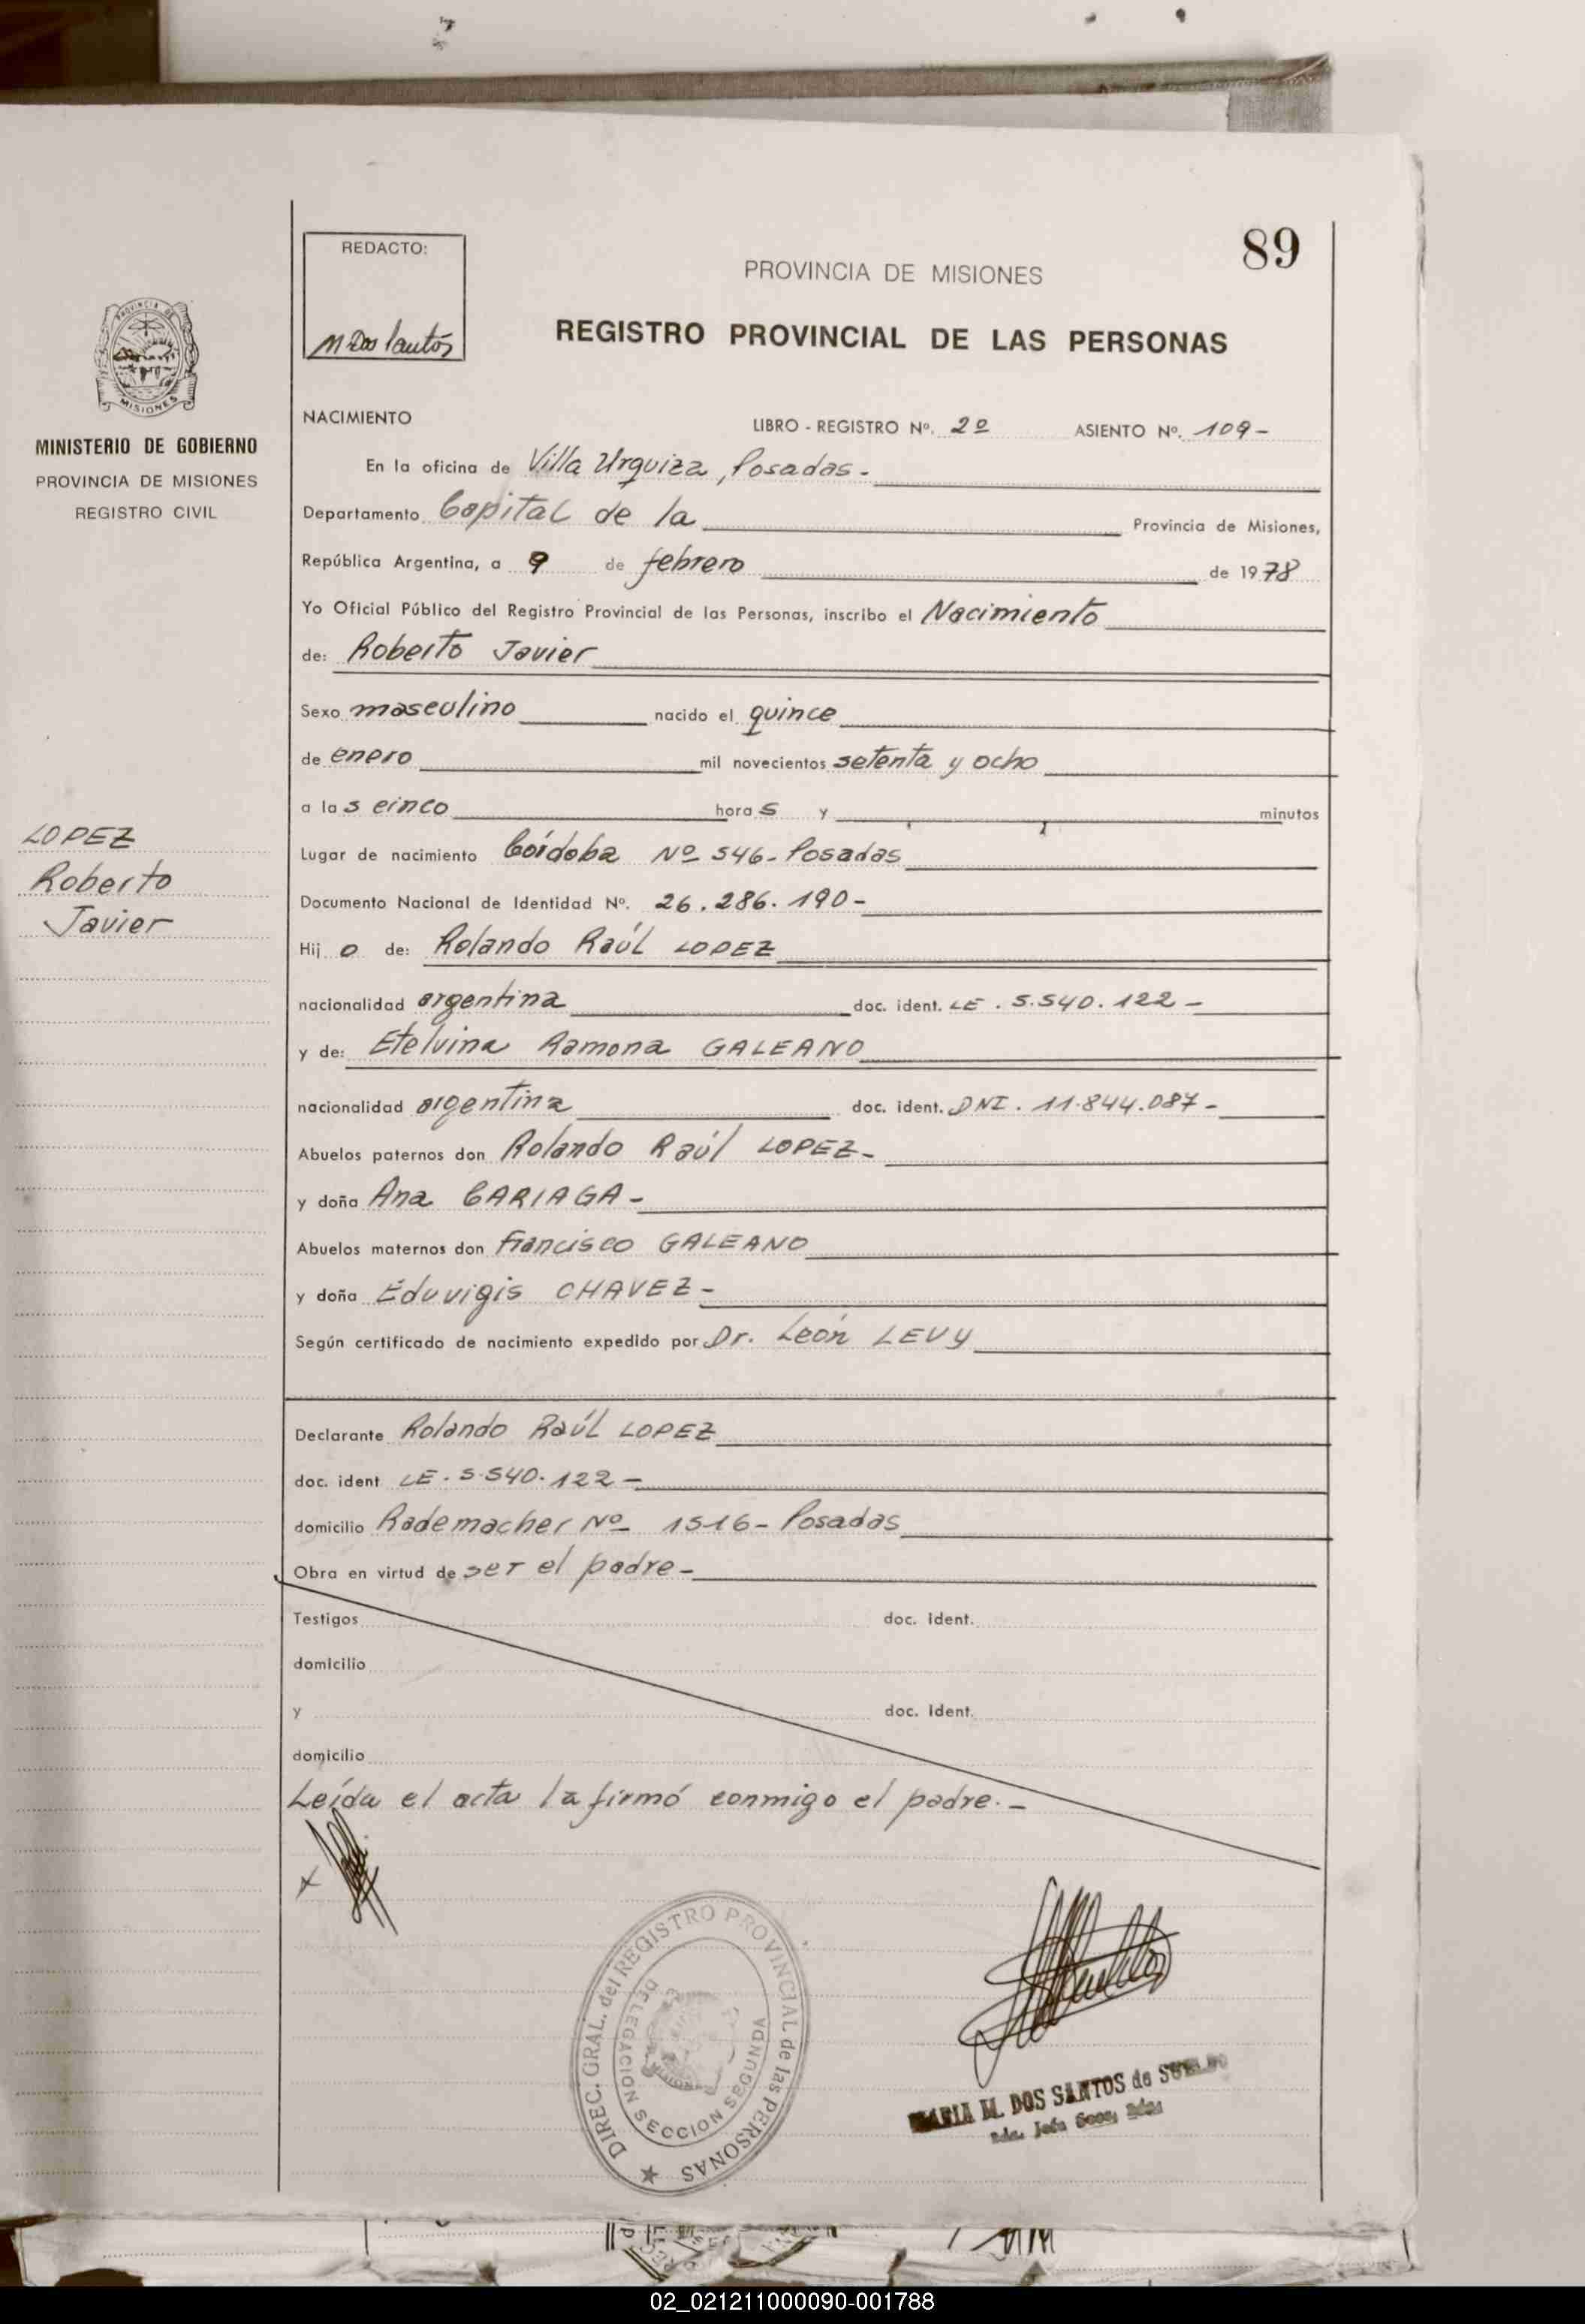 89
REDACTO:
M Dos Santos
PROVINCIA DE MISIONES
REGISTRO PROVINCIAL DE LAS PERSONAS
PROVINCIA DE
MISIONES
MINISTERIO DE GOBIERNO
PROVINCIA DE MISIONES
REGISTRO CIVIL
LOPEZ
Roberto
Javier
NACIMIENTO LIBRO - REGISTRO Nº. 2º ASIENTO Nº. 109-
En la oficina de Villa Urquiza, Posadas-
Departamento Capital de la Provincia de Misiones,
República Argentina, a 9 de febrero de 1978
Yo Oficial Público del Registro Provincial de las Personas, inscribo el Nacimiento
de: Roberto Javier
Sexo masculino nacido el quince
de enero mil novecientos setenta y ocho
a las cinco horas y minutos
Lugar de nacimiento Córdoba Nº 546- Posadas
Documento Nacional de Identidad Nº. 26.286.190-
Hijo de: Rolando Raúl LOPEZ
nacionalidad argentina doc. ident. LE. 5.540.122-
y de: Etelvina Ramona GALEANO
nacionalidad argentina doc. ident. DNI. 11.844.087-
Abuelos paternos don Rolando Raúl LOPEZ-
y doña Ana CARIAGA-
Abuelos maternos don Francisco GALEANO
y doña Eduvigis CHAVEZ-
Según certificado de nacimiento expedido por Dr. León LEVY
Declarante Rolando Raúl LOPEZ
doc. ident LE. 5.540.122-
domicilio Rademacher Nº 1516- Posadas
Obra en virtud de ser el padre-
Testigos doc. ident.
domicilio
y doc. ident.
domicilio
Leída el acta la firmó conmigo el padre.-
DIREC. GRAL. del REGISTRO PROVINCIAL de las PERSONAS
DELEGACION SECCION SEGUNDA
MARIA M. DOS SANTOS de
02_021211000090-001788